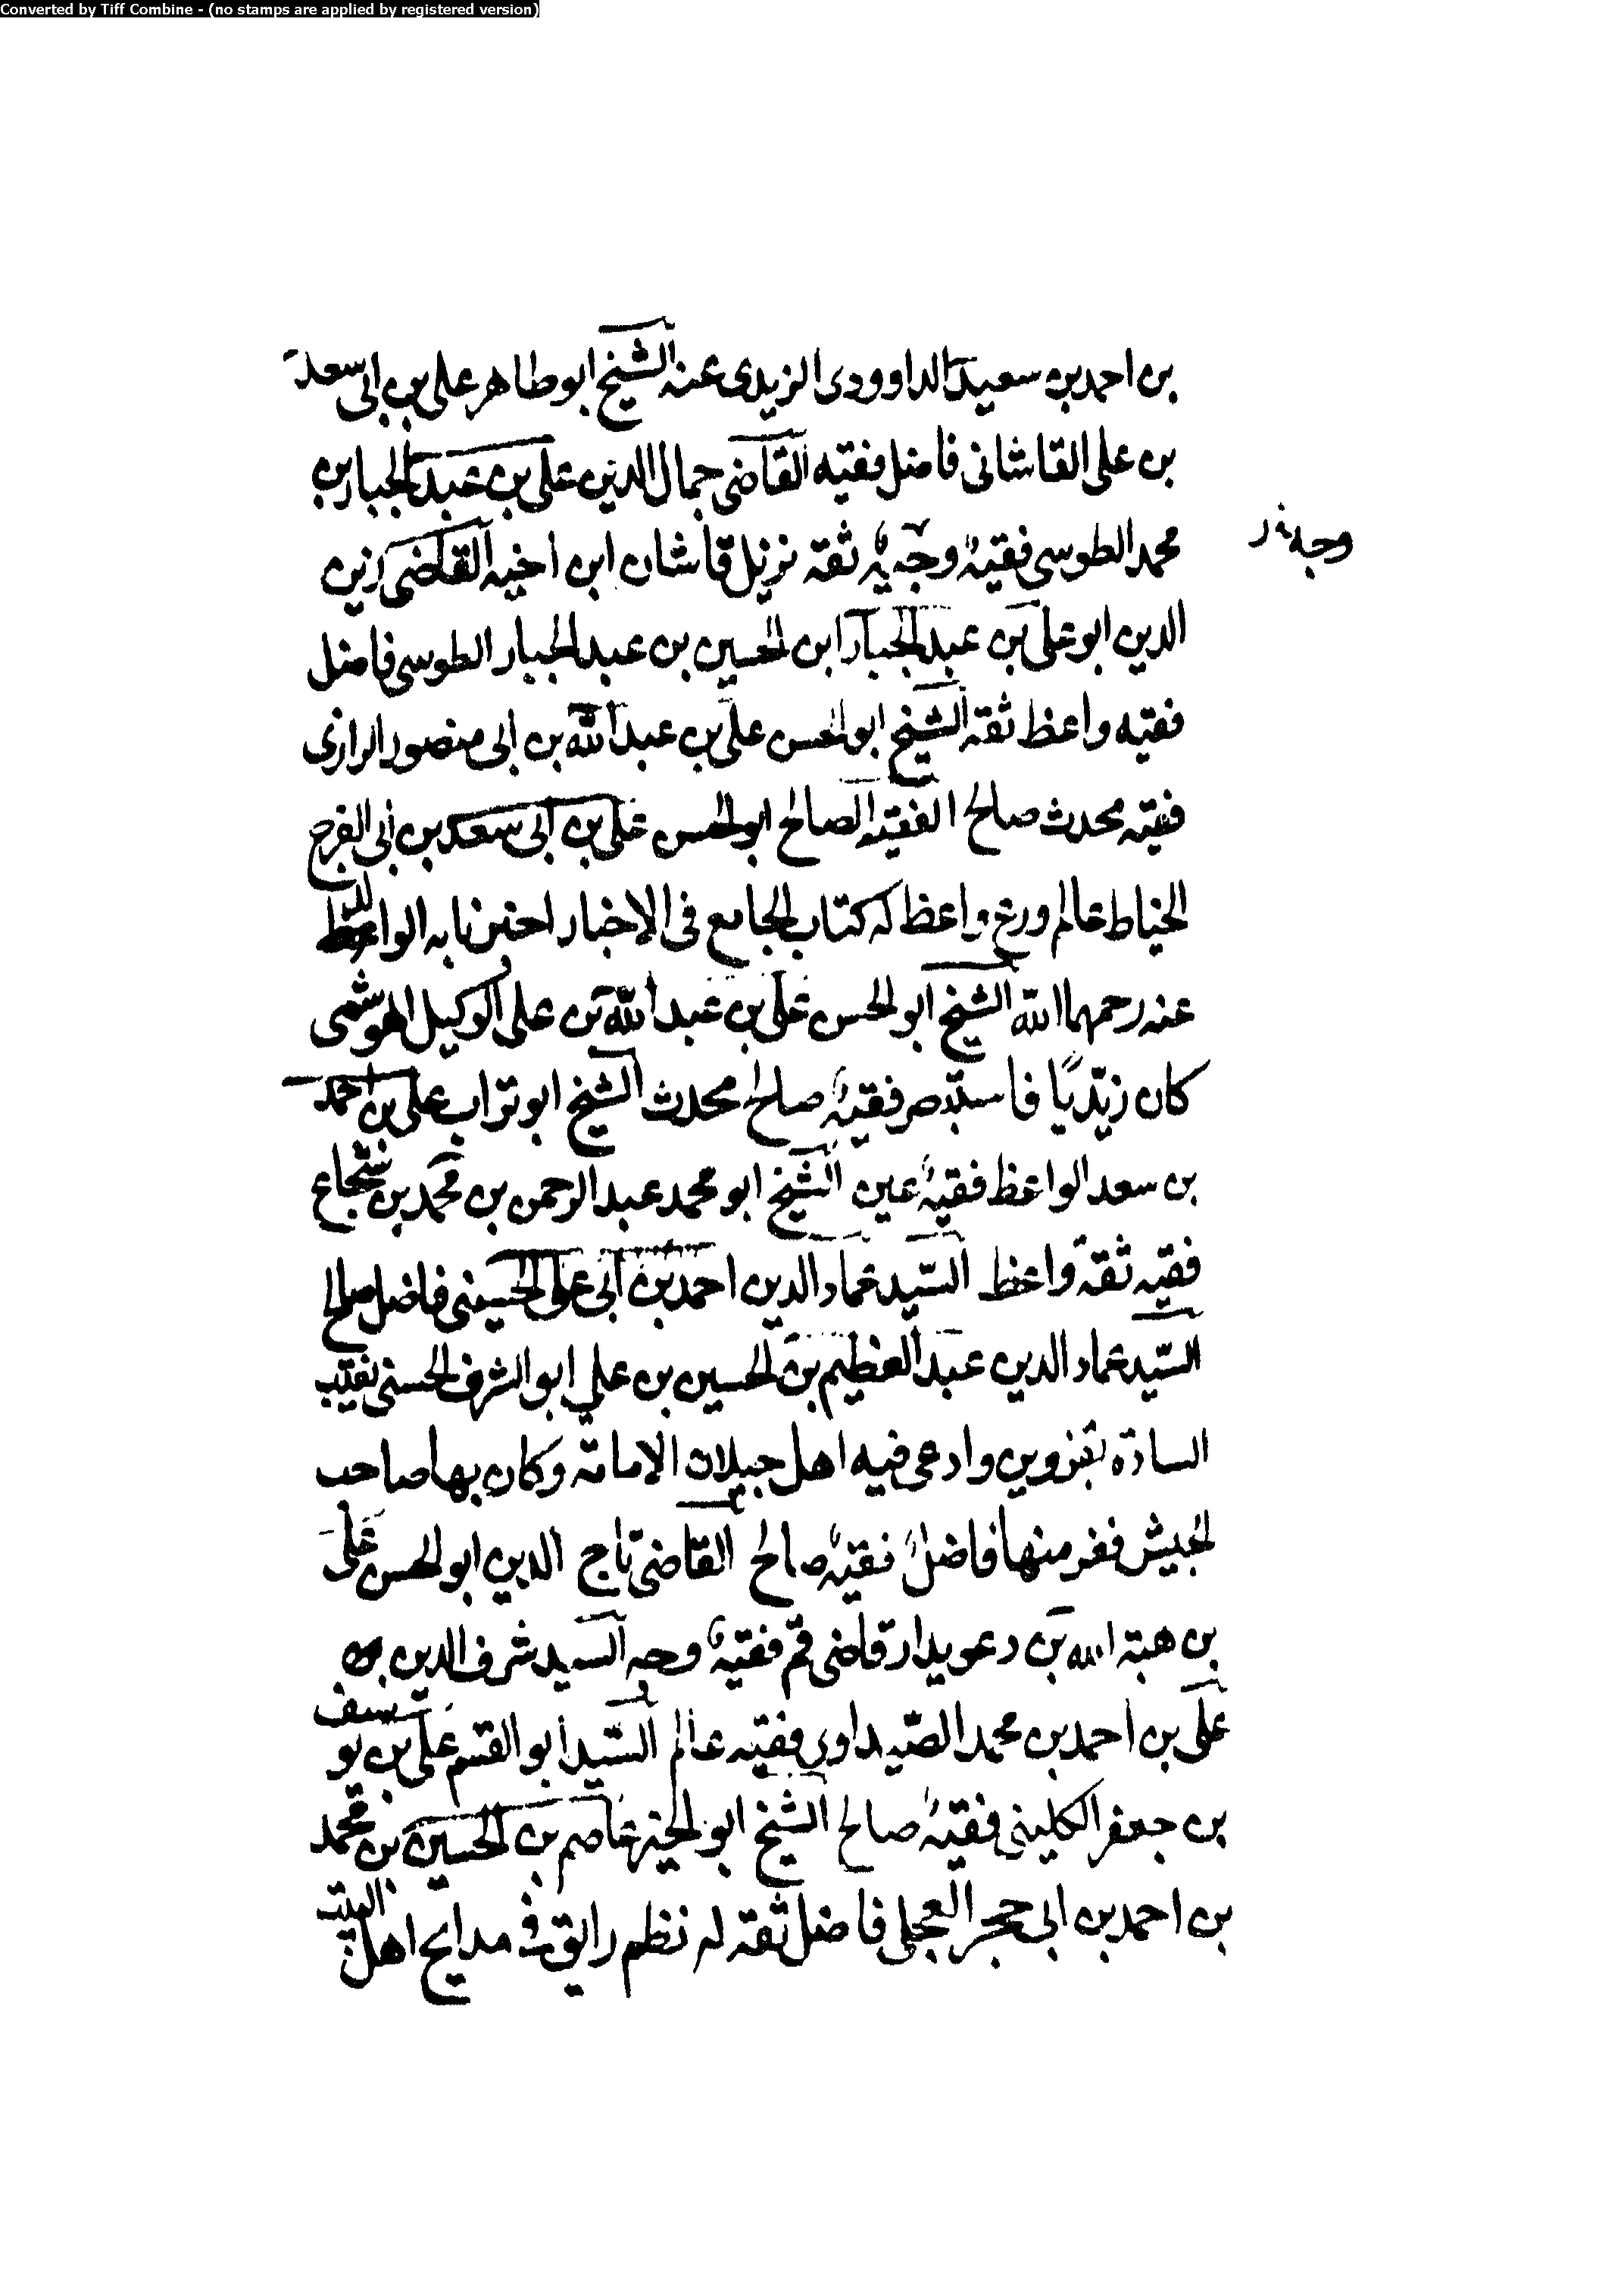 Converted by Tiff Combine - (no stamps are applied by registered version)
بن احمد بن سعيد الداوودى الزيدى عنه الشيخ ابو طاهر على بن ابى سعد
بن على القاشانى فاضل فقيه القاضى جمال الدين على بن عبد الجبار بن
محمد الطوسى فقيه وجه ثقة نزيل قاشان ابن اخيه القاضى زين
وجه
الدين ابو على بن عبد الجبار ابن الحسين بن عبد الجبار الطوسى فاضل
فقيه واعظ ثقة الشيخ ابو الحسن على بن عبد الله بن ابى منصور الرازى
فقيه محدث صالح الفقيه الصالح ابو الحسن على بن ابى سعد بن ابى الفرج
الخياط عالم ورع واعظ له كتاب الجامع فى الاخبار اخبرنا به الوالد
عنه رحمهما الله الشيخ ابو الحسن على بن عبد الله بن على الوكيل الهوشمى
كان زيديا فاستبصر فقيه صالح محدث الشيخ ابو تراب على بن احمد
بن سعد الواعظ فقيه عين الشيخ ابو محمد عبد الرحمن بن محمد بن شجاع
فقيه ثقة واعظ السيد عماد الدين احمد بن ابى على الحسينى فاضل صالح
السيد عماد الدين عبد العظيم بن الحسين بن على ابو الشرف الحسنى نقيب
السادة بقزوين وادعى فيه اهل جيلان الامامة وكان بها صاحب
الجيش ففر منها فاضل فقيه صالح القاضى تاج الدين ابو الحسن على
بن هبة الله بن دعويدار قاضى قم فقيه وجه السيد شرف الدين
على بن احمد بن محمد الصيداوى فقيه عالم السيد ابو القسم على بن يوسف
بن جعفر الكلينى فقيه صالح الشيخ ابو الخير عاصم بن الحسين بن محمد
بن احمد بن ابى حجر العجلى فاضل ثقة له نظم رايق فى مدايح اهل البيت